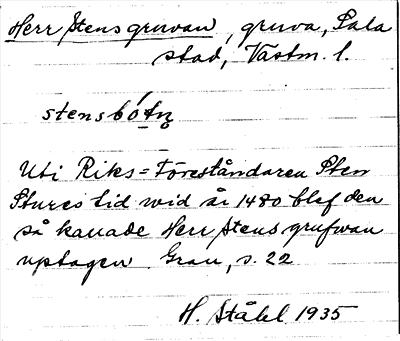 Herr Stens gruvan, gruva, Sala
stad, Västm. l.
stensbótn̥
Uti Riks=Föreståndaren Sten
Stures tid wid år 1480 blef den
så kallade Herr Stens grufwan
uptagen Grau, s. 22
H. Ståhl 1935